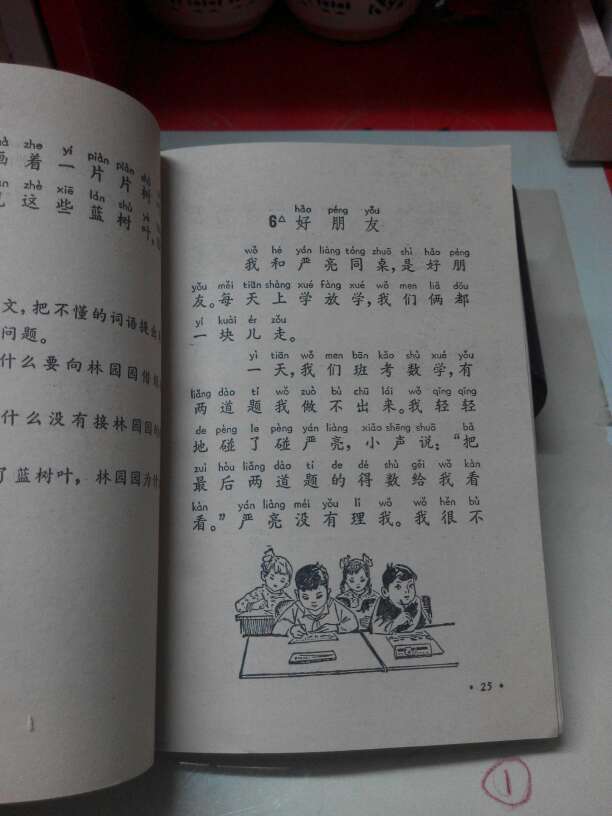 zhe yí piàn piàn
着一片片树
zhè xiē lán shù yè
这些蓝树叶
文,把不懂的词语提出
问题。
什么要向林园园借
什么没有接林园园
了蓝树叶,林园园为什
hǎo péng yǒu
6△ 好朋友
wǒ hé yán liàng tóng zhuō shì hǎo péng
我和严亮同桌,是好朋
yǒu měi tiān shàng xué fàng xué wǒ men liǎ dōu
友。每天上学放学,我们俩都
yí kuài ér zǒu
一块儿走。
yì tiān wǒ men bān kǎo shù xué yǒu
一天,我们班考数学,有
liǎng dào tí wǒ zuò bù chū lái wǒ qīng qīng
两道题我做不出来。我轻轻
de pèng le pèng yán liàng xiǎo shēng shuō bǎ
地碰了碰严亮,小声说:“把
zuì hòu liǎng dào tí de dé shù gěi wǒ kàn
最后两道题的得数给我看
kàn yán liàng méi yǒu lǐ wǒ wǒ hěn bù
看。”严亮没有理我。我很不
• 25 •
1